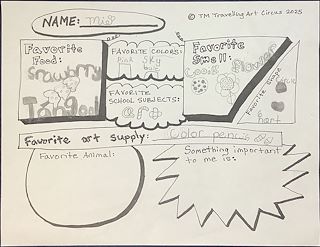 NAME: Mia
© TM Travelling Art Circus 2025
Favorite
Food:
strawberry
Tanghulu
FAVORITE COLORS:
Pink Sky
FAVORITE
SCHOOL SUBJECTS:
art
Favorite
Smell:
Cookie Flower
Favorite
heart
Favorite art supply: Color pencils
Favorite Animal:
Something important
to me is: